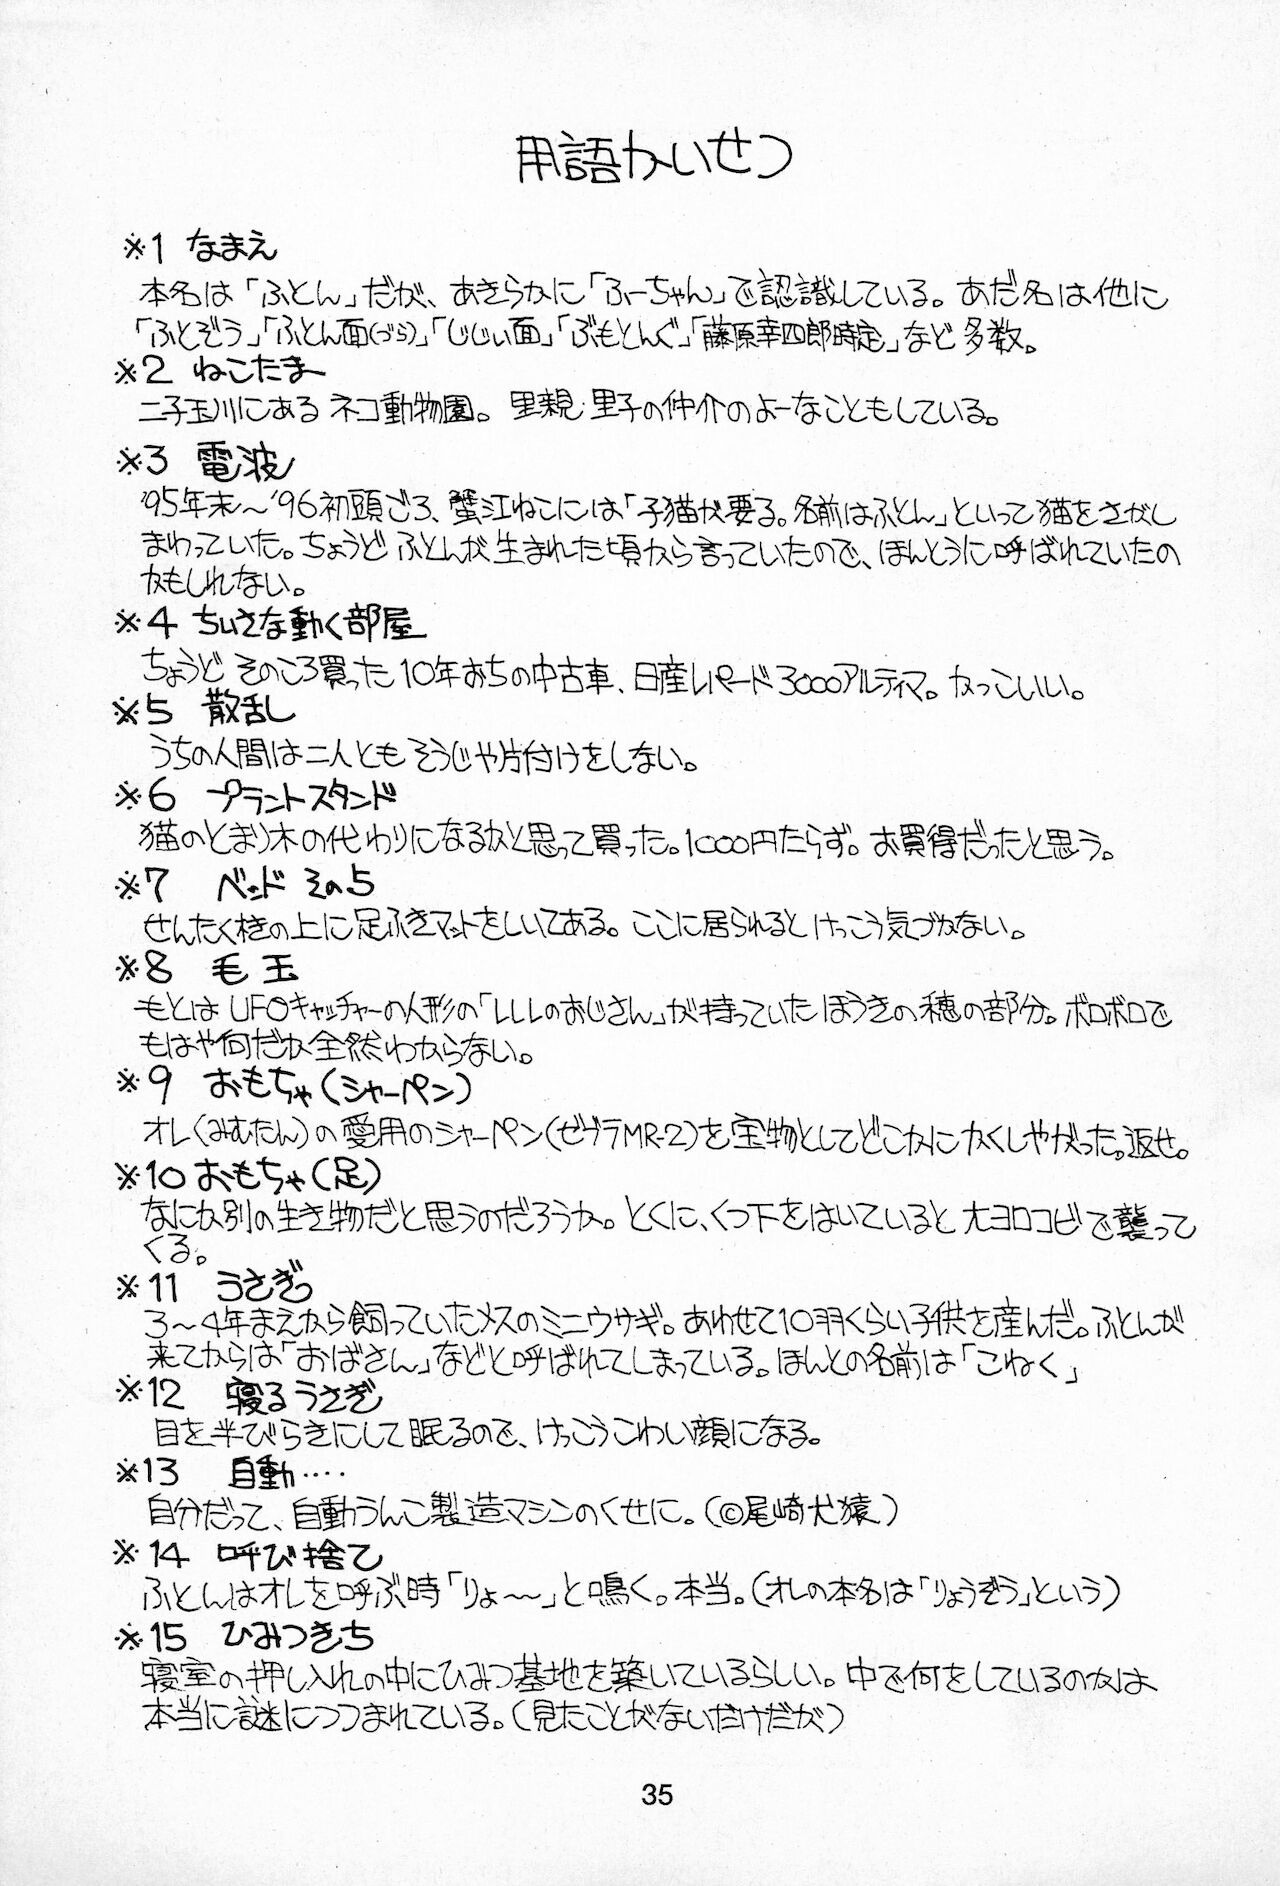 用語かいせつ
※1 なまえ
本名は「ふとん」だが、あきらかに「ふーちゃん」で認識している。あだ名は他に
「ふとぞう」「ふとん面(づら)」「じじい面」「ぶもとんぐ」「藤原幸四郎時定」など多数。
※2 ねこたま
二子玉川にあるネコ動物園。里親・里子の仲介のよーなこともしている。
※3 電波
'95年末〜'96初頭ごろ、蟹江ねこには「子猫が要る。名前はふとん」といって猫をさがし
まわっていた。ちょうどふとんが生まれた頃から言っていたので、ほんとうに呼ばれていたの
かもしれない。
※4 ちいさな動く部屋
ちょうどそのころ買った10年おちの中古車、日産レパード3000アルティマ。かっこいい。
※5 散乱し
うちの人間は二人ともそうじや片付けをしない。
※6 プラントスタンド
猫のとまり木の代わりになるかと思って買った。1000円たらず。お買得だったと思う。
※7 ベッドその5
せんたく機の上に足ふきマットをしいてある。ここに居られるとけっこう気づかない。
※8 毛玉
もとはUFOキャッチャーの人形の「レレレのおじさん」が持っていたほうきの穂の部分。ボロボロで
もはや何だか全然わからない。
※9 おもちゃ(シャーペン)
オレ(みむたん)の愛用のシャーペン(ゼブラMR-2)を宝物としてどこかにかくしやがった。返せ。
※10 おもちゃ(足)
なにか別の生き物だと思うのだろうか。とくに、くつ下をはいていると大ヨロコビで襲って
くる。
※11 うさぎ
3〜4年まえから飼っていたメスのミニウサギ。あわせて10羽くらい子供を産んだ。ふとんが
来てからは「おばさん」などと呼ばれてしまっている。ほんとの名前は「こねく」
※12 寝るうさぎ
目を半びらきにして眠るので、けっこうこわい顔になる。
※13 自動‥‥
自分だって、自動うんこ製造マシンのくせに。(©尾崎犬猿)
※14 呼び捨て
ふとんはオレを呼ぶ時「りょ〜〜」と鳴く。本当。(オレの本名は「りょうぞう」という)
※15 ひみつきち
寝室の押し入れの中にひみつ基地を築いているらしい。中で何をしているのかは
本当に謎につつまれている。(見たことがないだけだが)
35